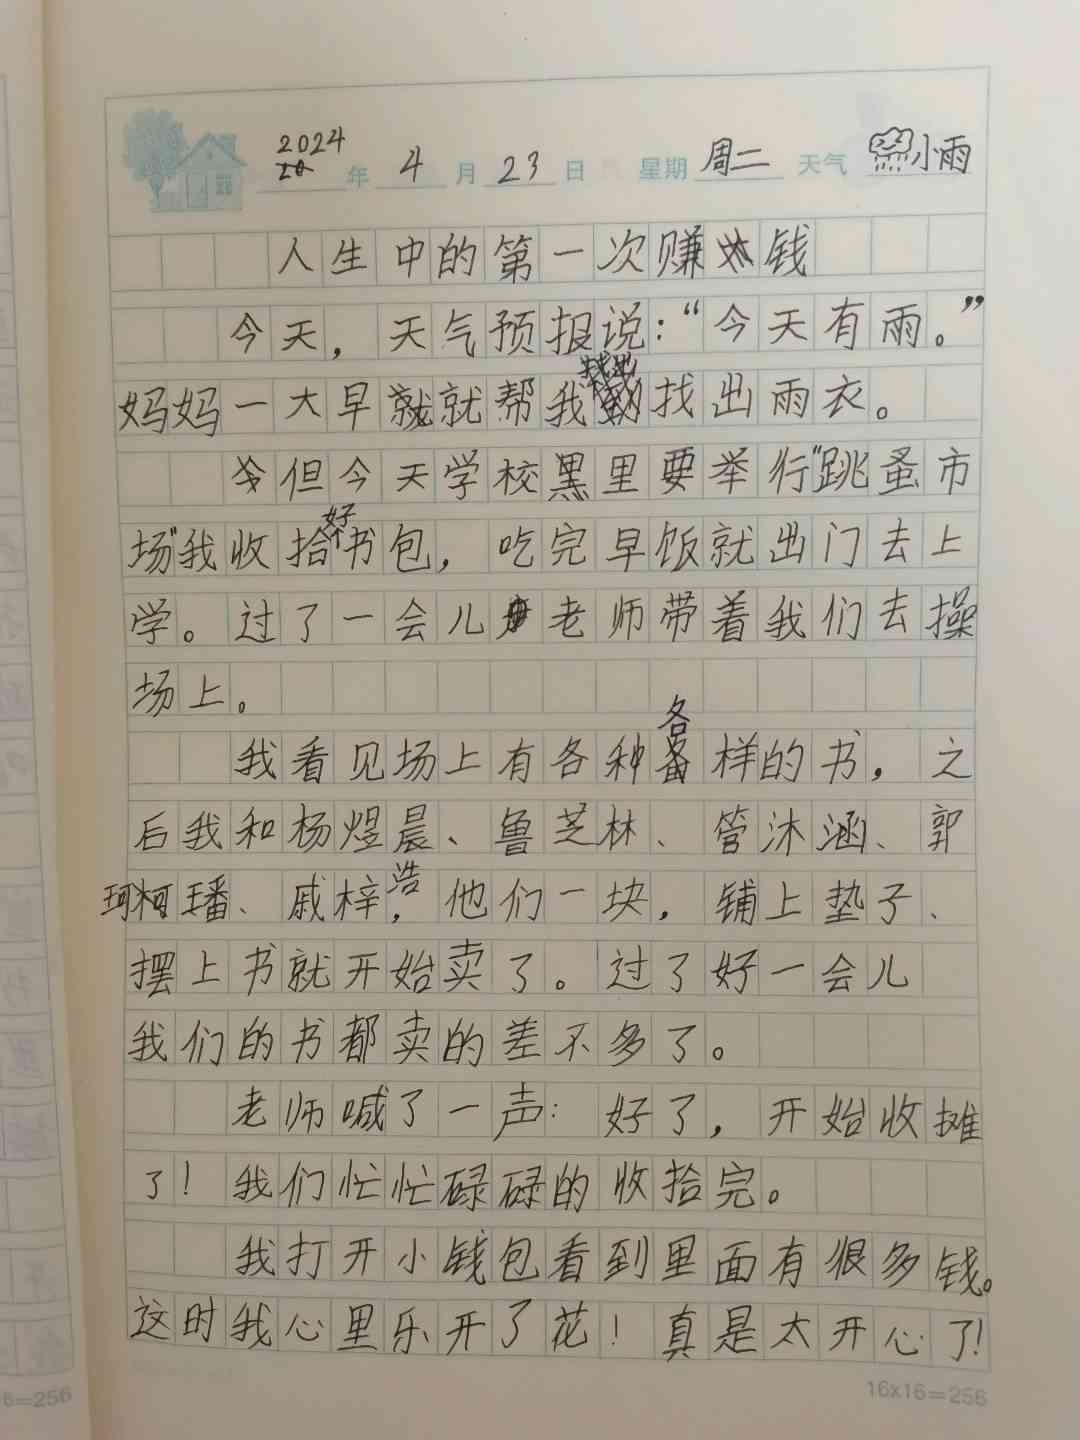 2024年4月23日 星期周二 天气小雨
人生中的第一次赚钱
今天，天气预报说：“今天有雨。”
妈妈一大早就帮我找出雨衣。
但今天学校里要举行“跳蚤市
场”我收拾好书包，吃完早饭就出门去上
学。过了一会儿老师带着我们去操
场上。
我看见场上有各种各样的书，之
后我和杨煜晨、鲁芝林、管沐涵、郭
珂璠、戚梓浩，他们一块，铺上垫子、
摆上书就开始卖了。过了好一会儿
我们的书都卖的差不多了。
老师喊了一声：好了，开始收摊
了！我们忙忙碌碌的收拾完。
我打开小钱包看到里面有很多钱。
这时我心里乐开了花！真是太开心了！
16x16=256
6=256